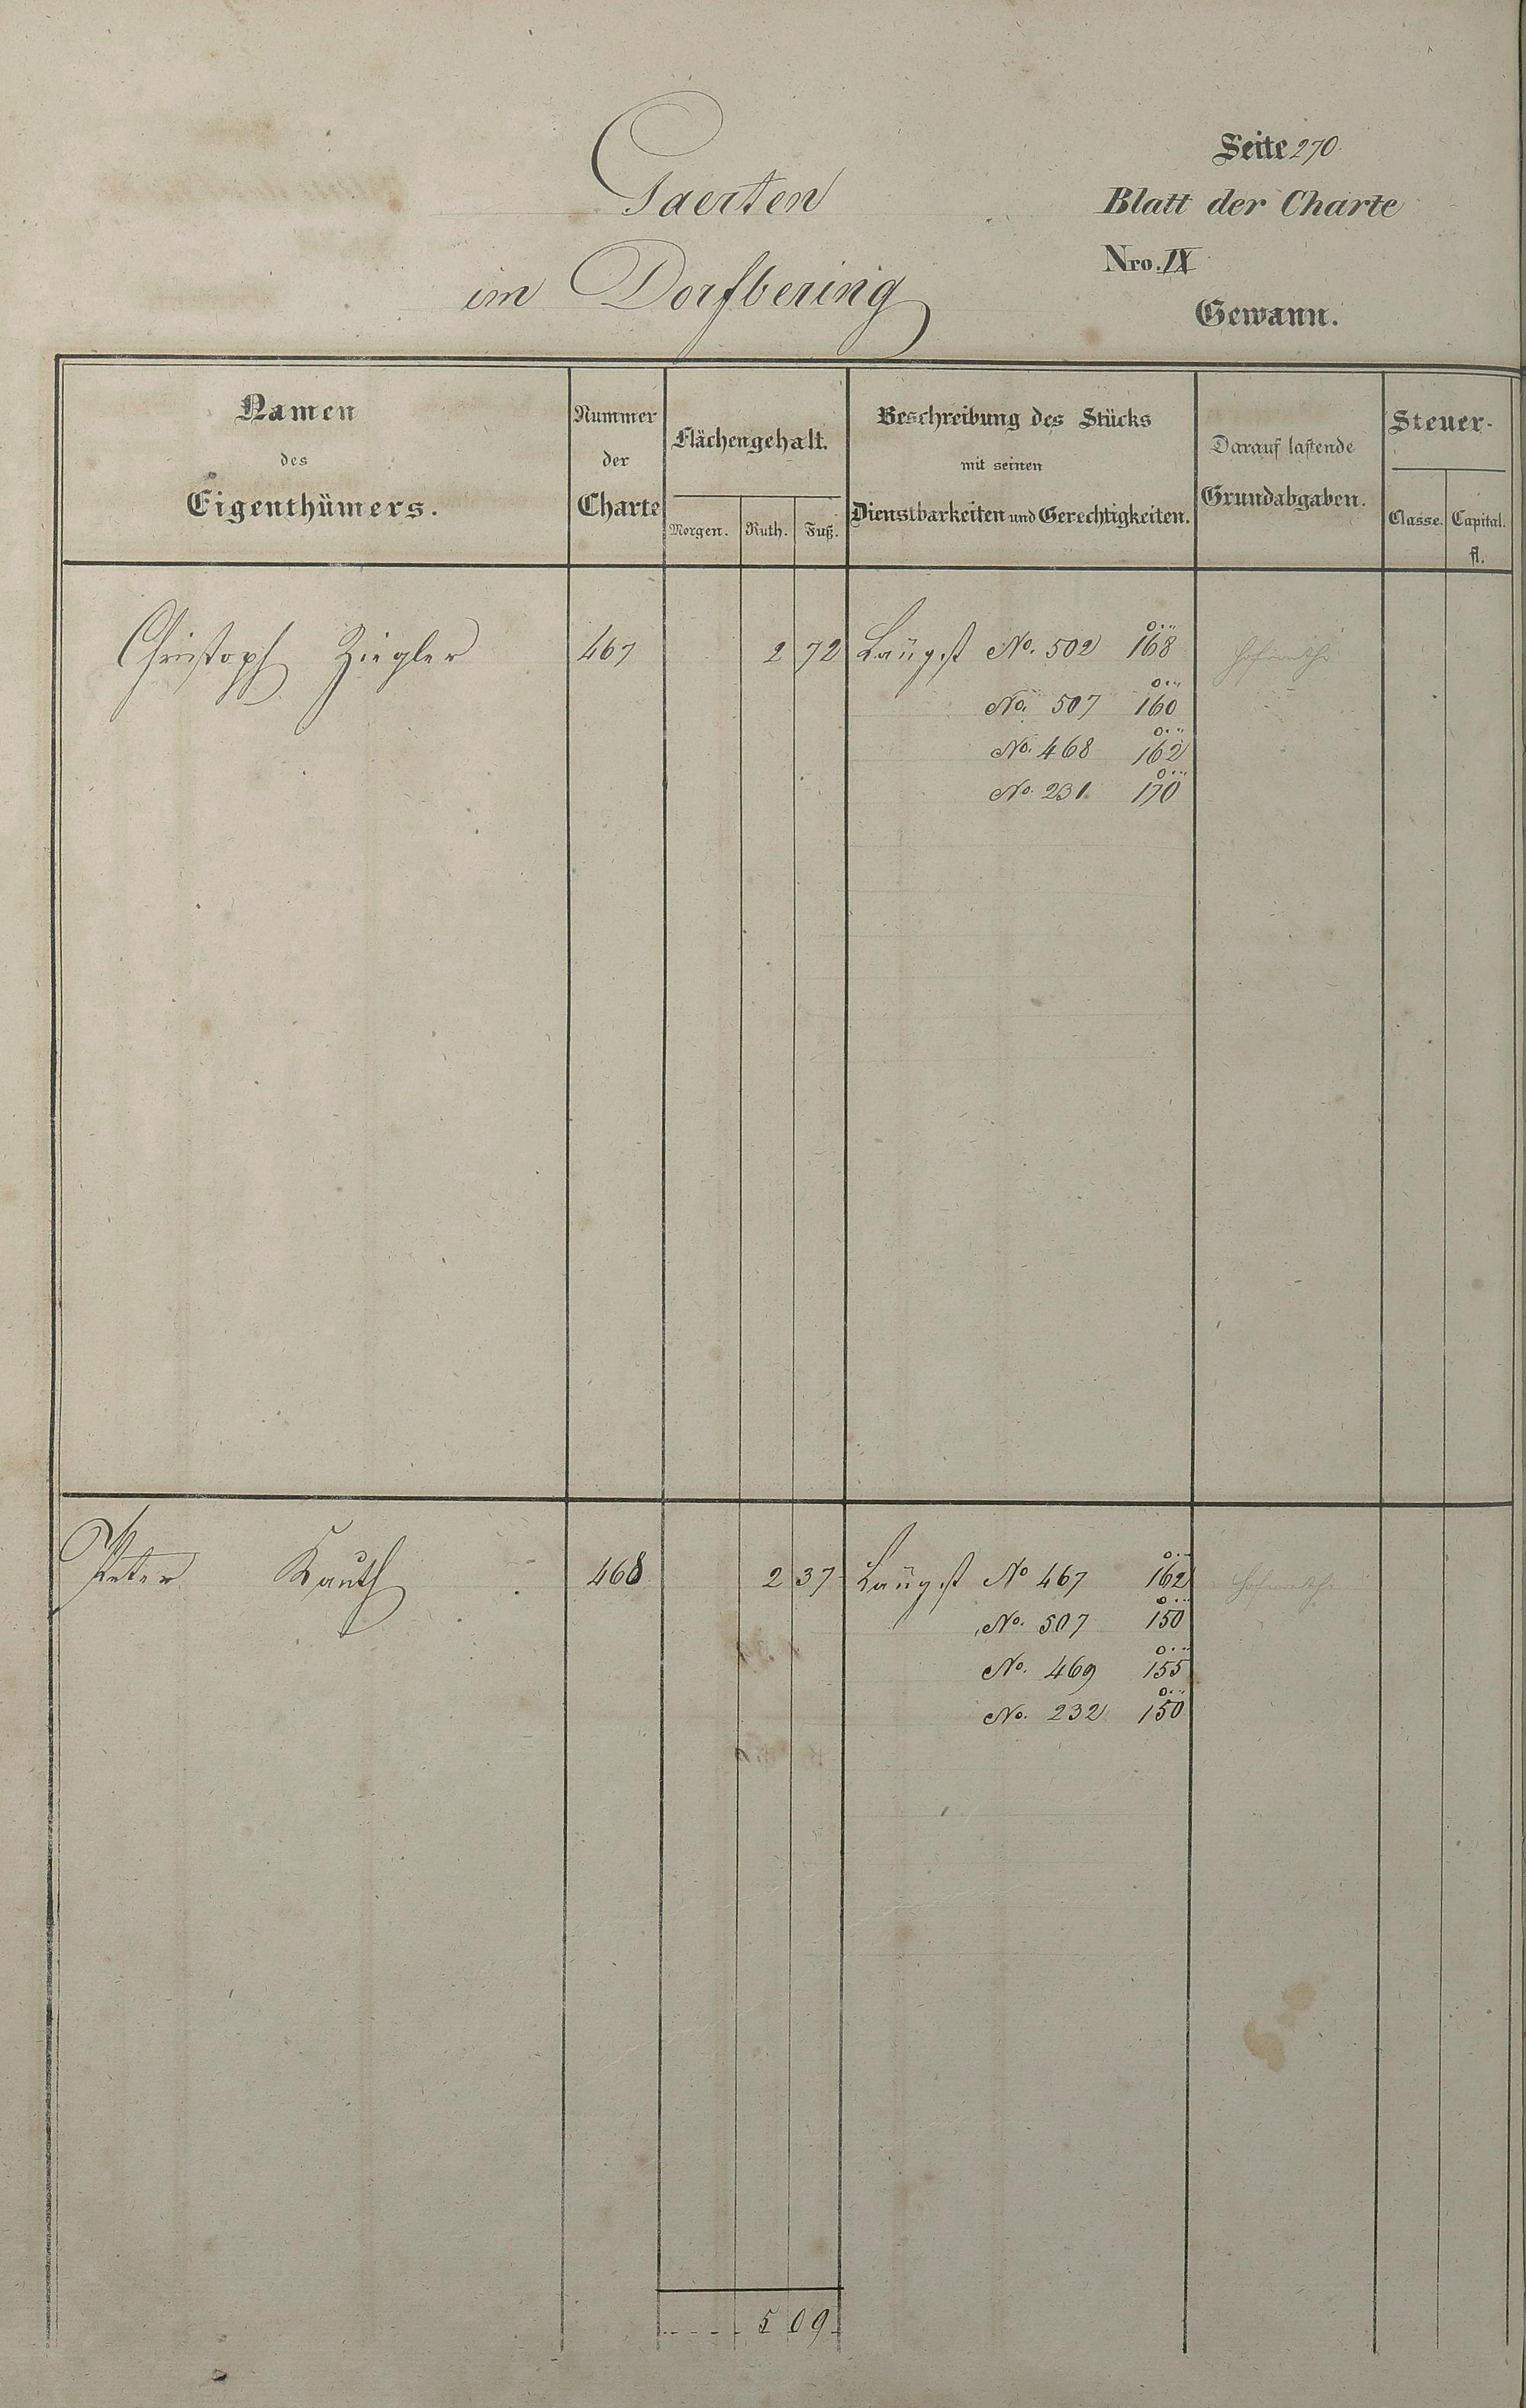 Seite 270.
Gaerten
Blatt der Charte
Nro. IX
im Dorfbering
Gewann.
Namen des Eigenthümers.
Nummer der Charte
Flächengehalt.
Morgen. Ruth. Fuß.
Beschreibung des Stücks mit seinen Dienstbarkeiten und Gerechtigkeiten.
Darauf lastende Grundabgaben.
Steuer-
Classe. Capital. fl.
Christoph Ziegler 467 2 72 Längst No. 502 168 Hofraithe
No. 507 160
No. 468 162
No. 231 170
Peter Kauth 468 2 37 Längst No 467 162 Hofraithe
No. 507 150
No. 469 155
No. 232 150
5 09